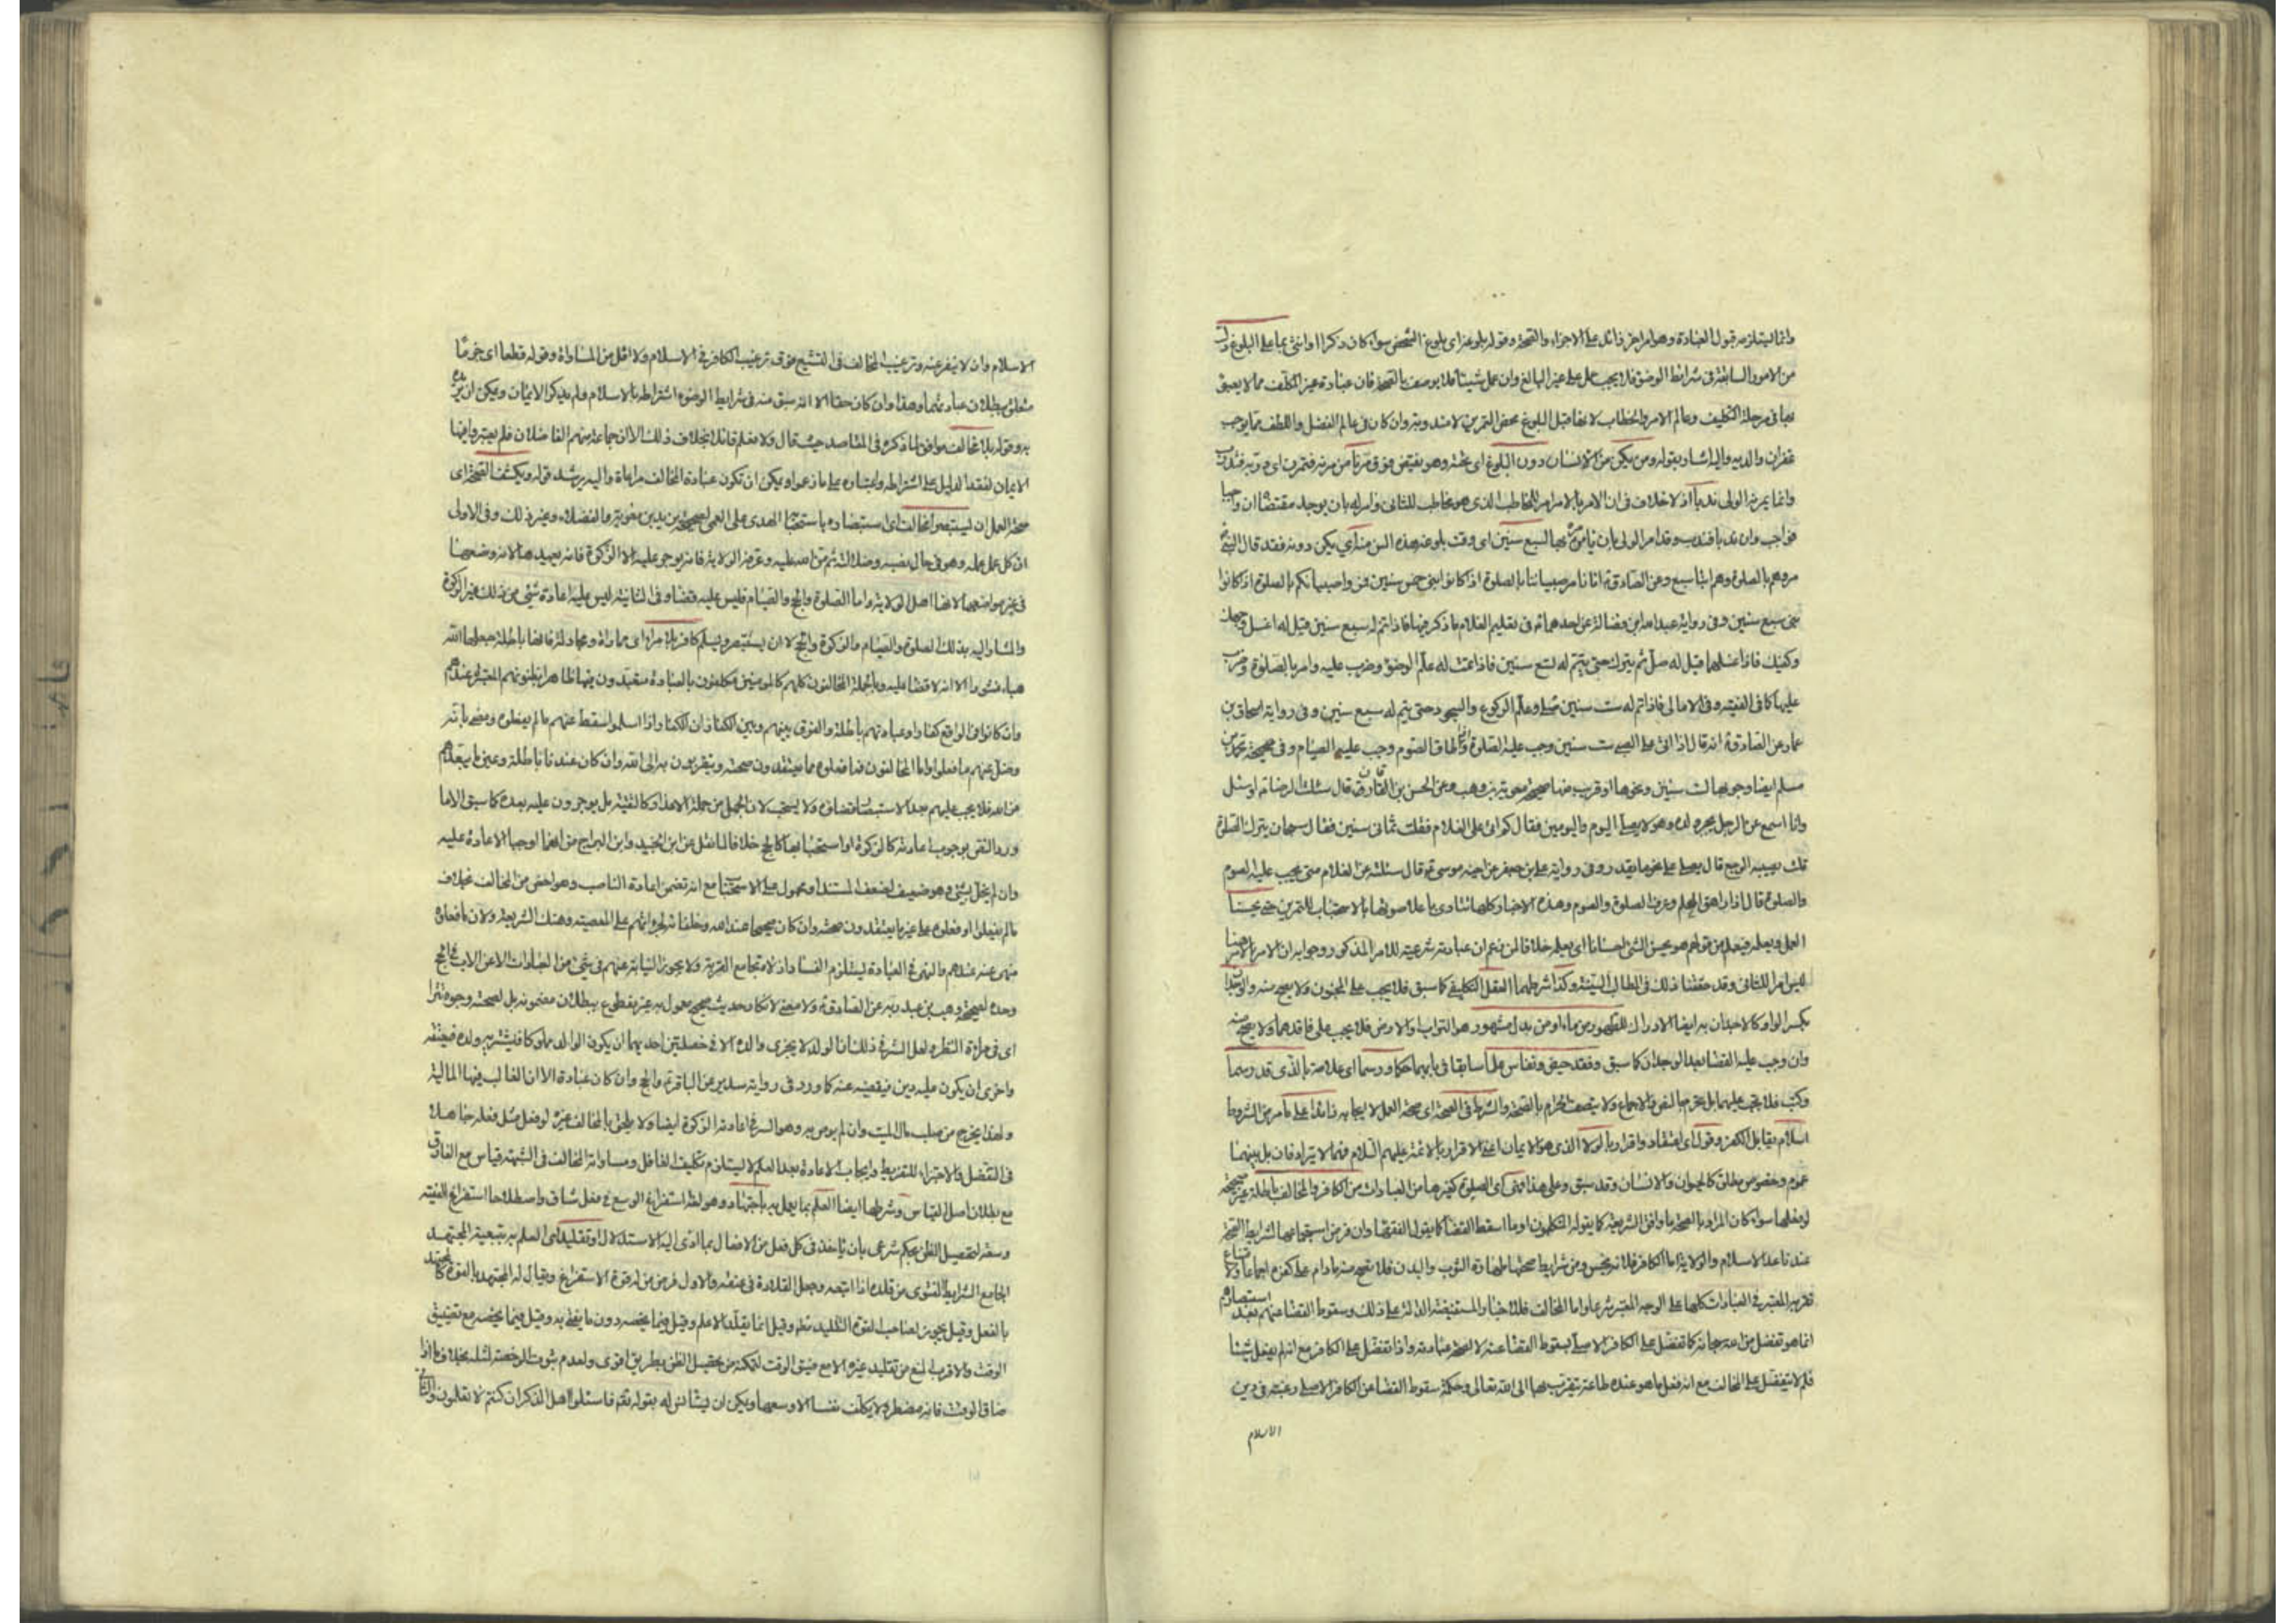 وانما يستلزمه قبول العبادة وهو امر اخر زائد على الاجزاء والصحة وقوله بلوغ اى بلوغ الشخص سواء كان ذكرا او انثى بما على البلوغ
من الامور السابقة فى شرائط الوضوء فلا يجب عمل على غير البالغ وان عمل شيئا فلا يوصف بالصحة فان عبادة غير المكلف مما لا
فى مرحلة التكليف وعالم الامر والخطاب قبل البلوغ محض التمرين لا مندوبة وان كان فى عالم الفضل واللطف مما يوجب
غفران والديه واليه اشار بقوله ومن يكن من الانسان دون البلوغ اى
وانما يمرنه الولى ندبا اذ لا خلاف فى ان الامر بالامر امر للمخاطب الذى هو مخاطب للثانى وامر له بان يوجد مقتضاه ان واجبا
فواجب وان ندبا فندب وقد امر الولى بان يأمره بها لسبع سنين اى وقت بلوغه هذه السن منذ اى يكن دونه فقد قال النبى
مروهم بالصلوة وهم ابناء سبع وعن الصادق ع انا نامر صبياننا بالصلوة اذا كانوا بنى خمس سنين فمروا صبيانكم بالصلوة اذا كانوا
بنى سبع سنين وفى رواية عبد الله بن فضالة عن احدهما فى تعليم الغلام ما ذكر فيها فاذا تم له سبع سنين قيل له اغسل وجهك
وكفيك فاذا غسلهما قيل له صل ثم يترك حتى يتم له تسع سنين فاذا تمت له علم الوضوء وضرب عليه وامر بالصلوة وضرب
عليها كما فى الفقيه وفى الامالى فاذا تم له ست سنين صلى وعلم الركوع والسجود حتى يتم له سبع سنين وفى رواية اسحاق بن
عمار عن الصادق ع انه قال اذا اتى على الصبى ست سنين وجب عليه الصلوة واذا اطاق الصوم وجب عليه الصيام وفى صحيحة محمد بن
مسلم ايضا وجوبها لست سنين ونحوها او قريب منها صحيحة معوية بن وهب وعن الحسن بن قارن قال سئلت الرضا ع او سئل
وانا اسمع عن الرجل يجبر ولده وهو لا يصلى اليوم واليومين فقال كم اتى على الغلام فقلت ثمانى سنين فقال سبحان الله يترك الصلوة
قلت يصيبه الوجع قال يصلى على نحو ما يقدر وفى رواية على بن جعفر عن اخيه موسى ع قال سئلته عن الغلام متى يجب عليه الصوم
والصلوة قال اذا راهق الحلم وعرف الصلوة والصوم وهذه الاخبار كلها تنادى باعلا صوتها بالاستحباب للتمرين حتى يحسنا
العمل ويعلمه فيعمل من قولهم هو يحسن الشئ احسانا اى يعلمه خلافا لمن زعم ان عبادته شرعية للامر المذكور وجوابه ان الامر بالامر هنا
ليس امرا للثانى وقد حققنا ذلك فى المطالب السنية وكذا شرطهما العقل التكليفى كما سبق فلا يجب على المجنون ولا يصح منه والوجدان
بكسر الواو كالاحيدان به ايضا الادراك للطهور من ماء او من بدل مشهور هو التراب والارض فلا يجب على فاقدهما ولا يصح منه
وان وجب عليه القضاء بعد الوجدان كما سبق وفقد حيض ونفاس علما سابقا فى بابهما حكما ورسما اى علامة بالذى قد رسما
وكتب فلا تجب عليهما بل تحرم بالنص والاجماع ولا يتصف الحرام بالصحة والشرط فى الصحة اى صحة العمل لا ايجابه زائدا على ما مر من الشروط
اسلام يقابل الكفر وقول اى اعتقاد واقرار بالولا الذى هو الايمان اعنى الاقرار بالائمة عليهم السلام فهما لا يترادفان بل بينهما
عموم وخصوص مطلق كالحيوان والانسان وقد سبق وعلى هذا فهى اى الصلوة كغيرها من العبادات من الكافر والمخالف باطلة غير صحيحة
لو فعلها سواء كان المراد بالصحة ما وافق الشريعة كما يقوله المتكلمون او ما اسقط القضاء كما يقول الفقهاء وان فرض استجماعها لشرايط الصحة
عندنا عدا الاسلام والولاية اما الكافر فلانه نجس ومن شرايط صحتها طهارة الثوب والبدن فلا تصح منه ما دام على كفره اجماعا
المعتبر فى العبادات كلها على الوجه المعتبر شرعا واما المخالف فللاخبار المستفيضة الدالة على ذلك وسقوط القضاء عنهم بعد استبصارهم
انما هو تفضل من الله سبحانه كما تفضل على الكافر الاصلى بسقوط القضاء عنه لا لصحة عبادته واذا تفضل على الكافر مع انه لم يفعل شيئا
فلم لا يتفضل على المخالف مع انه فعل ما هو عنده طاعة يتقرب بها الى الله تعالى وحكمة سقوط القضاء عن الكافر الاصلى رغبته فى دين
الاسلام
الاسلام وان لا ينفر عنه وترغيب المخالف فى التشيع فوق ترغيب الكافر فى الاسلام ولا اقل من المساواة وقوله قطعا اى جزما
متعلق ببطلان عبادتهما وهذا وان كان حقا الا انه سبق منه فى شرايط الوضوء اشتراطه بالاسلام ولم يذكر الايمان ويمكن ان يريده
به وقوله بلا مخالف موافق لما ذكره فى المقاصد حيث قال ولا نعلم قائلا بخلاف ذلك الا ان جماعة منهم الفاضلان فلم يعتبروا فيها
الايمان لفقد الدليل على اشتراطه واعتباره على ما زعموا ويمكن ان تكون عبادة المخالف مراعاة واليه يرشد قوله ويكشف الصحة اى
صحة العمل ان يستبصر المخالف اى استبصاره باستحبابه الهدى على العمى لصحيحة بريد بن معوية والفضلاء وغير ذلك وفى الاولى
ان كل عمل عمله وهو فى حال نصبه وضلالته ثم من الله عليه وعرفه الولاية فانه يوجر عليه الا الزكوة فانه يعيدها لانه وضعها
فى غير مواضعها لانها اهل الولاية واما الصلوة والحج والصيام فليس عليه قضاء وفى الثانية ليس عليه اعادة شئ من ذلك غير الزكوة
والمشار اليه بذلك الصلوة والصيام والزكوة والحج لا ان يستبصر ويسلم كافر بلا مراء اى مماراة ومجادلة فانها باطلة جعلها الله
هباء منثورا الا انه لا قضاء عليه وبالجملة المخالفون كلهم كالمؤمنين مكلفون بالعبادة متعبدون بها ظاهرا بظنونهم المعتبرة عندهم
وان كانوا فى الواقع كفارا وعباداتهم باطلة والفرق بينهم وبين الكفار ان الكفار اذا اسلموا سقط عنهم ما لم يفعلوه ومضى باثمه
وفضل عنهم ما فعلوا واما المخالفون فما فعلوه مما يعتقدون صحته ويتقربون به الى الله وان كان عندنا باطلة وعين ما يبعدهم
من الله فلا يجب عليهم بعد الاستبصار قضاؤه ولا يستحب لان الجهل من جملة الاعذار كالتقية بل يوجرون عليه بعده كما سبق الا ما
ورد النص بوجوب اعادته كالزكوة او استحبابها كالحج خلافا لما نقل عن ابن الجنيد وابن البراج من انهما اوجبا الاعادة عليه
وان لم يخل بشئ وهو ضعيف لضعف المستند او محمول على الاستحباب مع انه تضمن اعادة الناصب وهو اخص من المخالف بخلاف
ما لم يفعلوا او فعلوه على غير ما يعتقدون صحته وان كان صحيحا عند الله وخلفائه لجرائتهم على المعصية وهتك الشريعة ولان ما فعلوه
منهى عنه عندهم والنهى فى العبادة يستلزم الفساد اذ لا تجامع القربة ولا يجوز النيابة عنهم فى شئ من العبادات الا عن الاب فى الحج
وحده لصحيحة وهب بن عبد ربه عن الصادق ع ولا معنى لانكار حديث صحيح معمول به غير مقطوع ببطلان مضمونه بل لصحته وجوه تترا
اى فى مراة النظر ولعل السر فى ذلك ان الولد لا يجزى والده الا فى خصلتين احديهما ان يكون الوالد مملوكا فيشتريه ولده فيعتقه
واخرى ان يكون عليه دين فيقضيه عنه كما ورد فى رواية سدير عن الباقر ع والحج وان كان عبادة الا ان الغالب فيها المالية
ولهذا يخرج من صلب مال الميت وان لم يوص به وهو السر فى اعادته الزكوة ايضا ولا يلحق بالمخالف غيره لو فعل مثل فعله جاهلا
فى التفضل والاجتزاء للتفريط وايجاب الاعادة بعد العلم لا يستلزم تكليف الغافل ومساواته المخالف فى الشبهة قياس مع الفارق
مع بطلان اصل القياس وشرطها ايضا العلم بما يعمل به باجتهاد وهو لغة استفراغ الوسع فى فعل شاق واصطلاحا استفراغ الفقيه
وسعه لتحصيل الظن بحكم شرعى بان ياخذ فى كل فعل من الافعال بما ادى اليه الاستدلال او تقليد اى العلم به بتبعية المجتهد
الجامع الشرايط للفتوى من قلده اذا اتبعه وجعل القلادة فى عنقه والاول فرض من له قوة الاستفراغ ويقال له المجتهد بالقوة كالمجتهد
بالفعل وقيل يجوز لصاحب القوة التقليد نعم وقيل انما يقلد الاعلم وقيل فيما يخصه دون ما يفتى به وقيل فيما يخصه مع تضييق
الوقت والاقرب المنع من تقليد غيره الا مع ضيق الوقت لتمكنه من تحصيل الظن بطريق اقوى ولعدم ثبوت الرخصة لمثله بخلاف ما اذا
ضاق الوقت فانه مضطر ولا يكلف نفسا الا وسعها ويمكن ان يستانس له بقوله تعم فاسئلوا اهل الذكر ان كنتم لا تعلمون والثانى